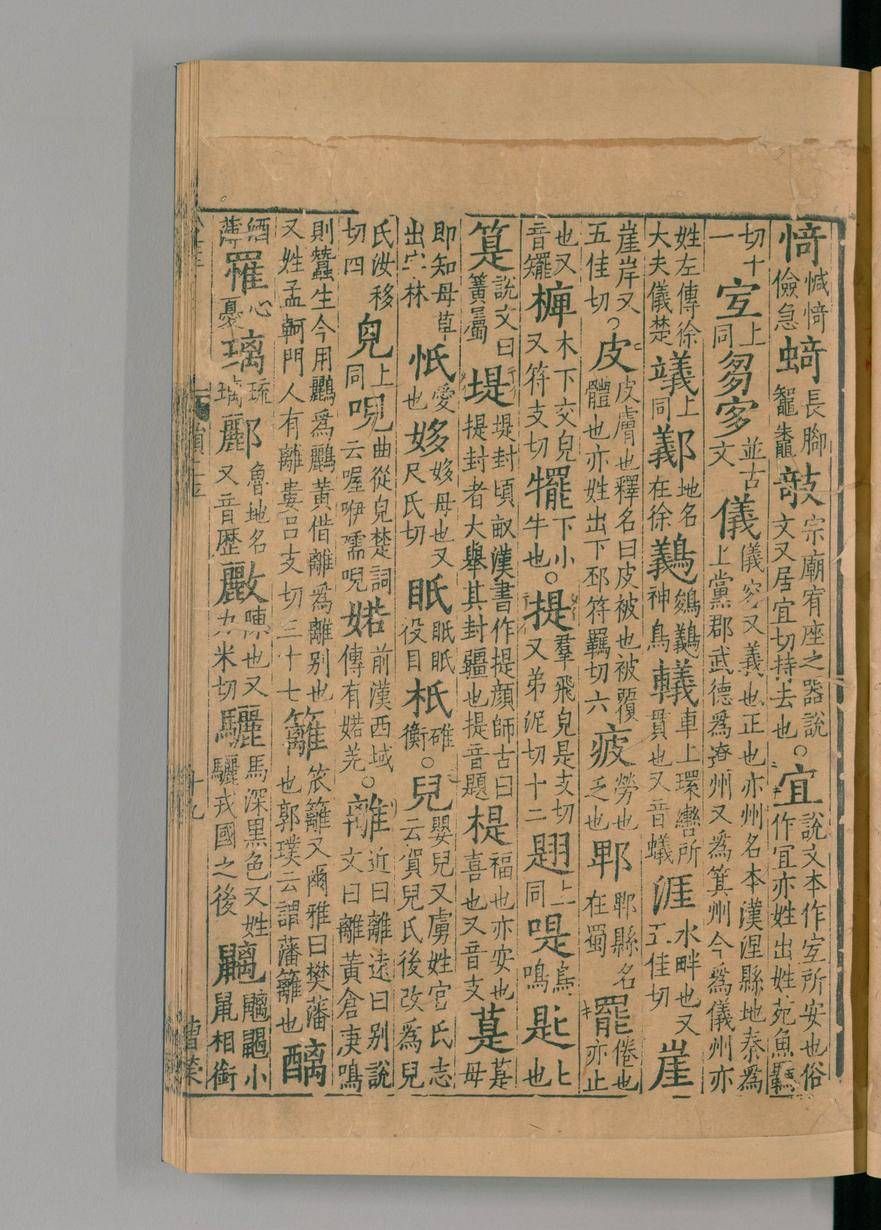 㥓儉急䗁長脚鼅鼄攲宗廟宥座之器說文又居宜切持去也宜說文本作宐所安也俗作宜亦姓出姓苑魚羈
切十一宐上同並古文儀儀容又義也正也亦州名本漢涅縣地秦為上黨郡武德為遼州又為箕州今為儀州亦
姓左傳徐大夫儀楚䇃上同地名在徐鸃鵕鸃神鳥轙車上環轡所貫也又音蟻涯水畔也又五佳切崖
崖岸又五佳切皮皮膚也釋名曰皮被也被覆體也亦姓出下邳符羈切六疲勞也乏也郫郫縣名在蜀罷倦也亦止
也又音𤖕木下交皃又符支切犤下小牛也提羣飛皃是支切又弟泥切十二翨上同㖷鳥鳴匙匕也
說文曰簧屬堤堤封頃畝漢書作提顏師古曰提封者大舉其封疆也提音題禔福也亦安也喜也又音支䓳䓳母
即知母草出字林忯愛也姼姼母也又尺氏切眡眡眡役目柢碓衡兒嬰兒又虜姓官氏志云賀兒氏後改為兒
氏汝移切四上同唲曲從皃楚詞云喔咿嚅唲婼前漢西域傳有婼羌離近曰離遠曰別說文曰離黃倉庚鳴
則蠶生今用鸝為鸝黃借離為離別也又姓孟軻門人有離婁呂支切三十七籬笊籬又爾雅曰樊藩也郭璞云謂藩籬也醨
酒薄罹心憂璃琉璃酈魯地名又音歷陳也又力米切驪馬深黑色又姓驪戎國之後小鼠相銜
十九
曹榮